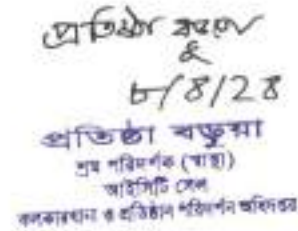 প্রতিষ্ঠা বড়ুয়া
৮/৪/২৪
প্রতিষ্ঠা বড়ুয়া
শ্রম পরিদর্শক (স্বাস্থ্য)
আইসিটি সেল
কলকারখানা ও প্রতিষ্ঠান পরিদর্শন অধিদপ্তর